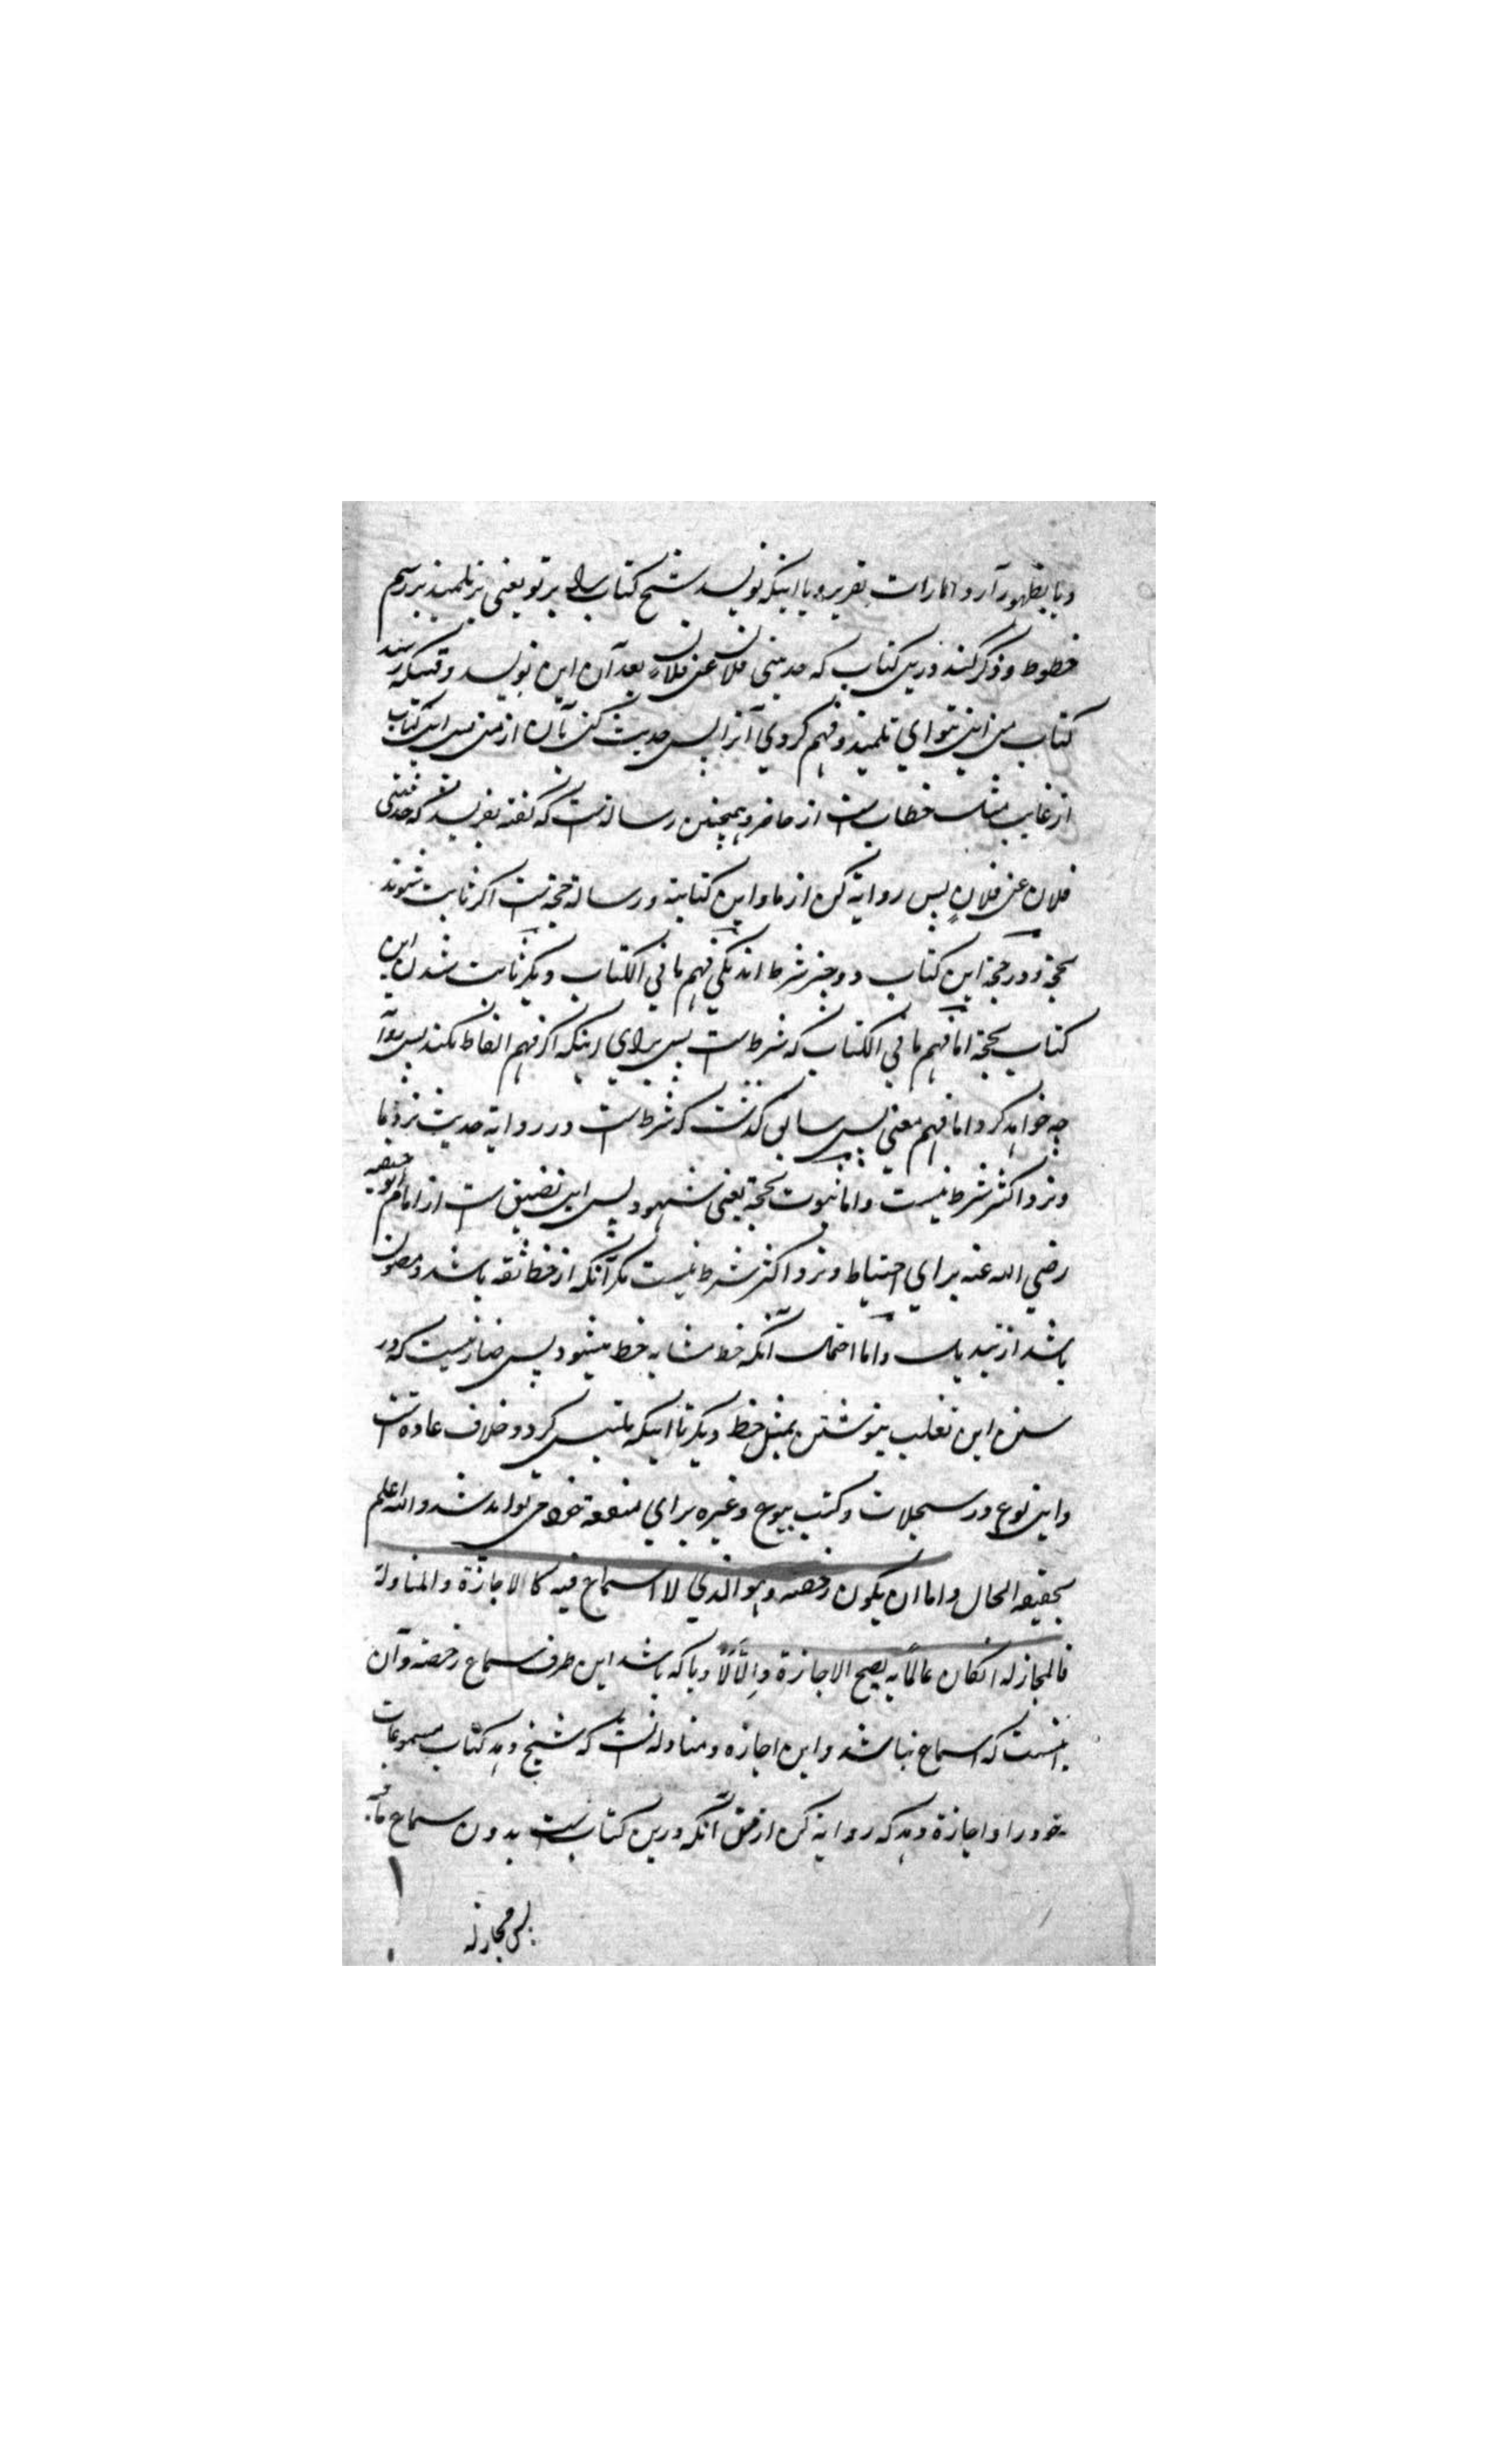 و یا بظهور آر و امارات تقریر و یا اینکه نویسد شیخ کتاب را بر تو یعنی بر تلمیذ بر رسم
خطوط و ذکر کند درین کتاب که حدثنی فلان عن فلان بعد آن این نویسد وقتیکه رسد
کتاب من این بتو ای تلمیذ و فهم کردی آنرا پس حدیث کن بآن از من پس این کتاب
از غایب مثل خطاب است از حاضر و همچنین رسالة است که گفته بفرستد که حدثنی
فلان عن فلانٍ پس روایة کن از ما و این کتابة و رسالة حجة است اگر ثابت شوند
بحجة و در حجة این کتاب دو چیز شرط اند یکی فهم ما فی الکتاب دیگر ثابت شدن این
کتاب بحجة اما فهم ما فی الکتاب که شرط است پس برای اینکه اگر فهم الفاظ نکند پس روایة
چه خواهد کرد و اما فهم معنی پس سابق گذشت که شرط است در روایة حدیث نزد ما
و نزد اکثر شرط نیست و اما ثبوت بحجة یعنی شهود پس این تضییق است از امام ابو حنیفه
رضی الله عنه برای احتیاط و نزد اکثر شرط نیست مگر آنکه از خط ثقه باشد و مصون
باشد از تبدیل و اما احتمال آنکه خط مشابه خط میشود پس ضار نیست که در
سنن این تغلب بنوشتن بمثل خط دیگر تا اینکه ملتبس گردد خلاف عادة است
و این نوع در سجلات و کتب بیوع و غیره برای منفعة خود می تواند شد والله اعلم
بحقیقه الحال و اما ان یکون رخصه و هو الذی لا اسماع فیه کالاجازة والمناولة
فالمجاز له انکان عالمًا به یصح الاجازة وإلّا لَا و یا که باشد این طرف سماع رخصة و آن
اینست که اسماع نباشد و این اجازه و مناولة است که شیخ دهد کتاب مسموعات
خود را و اجازة دهد که روایة کن از من آنکه درین کتاب است بدون سماع ما فیه
پس مجاز له